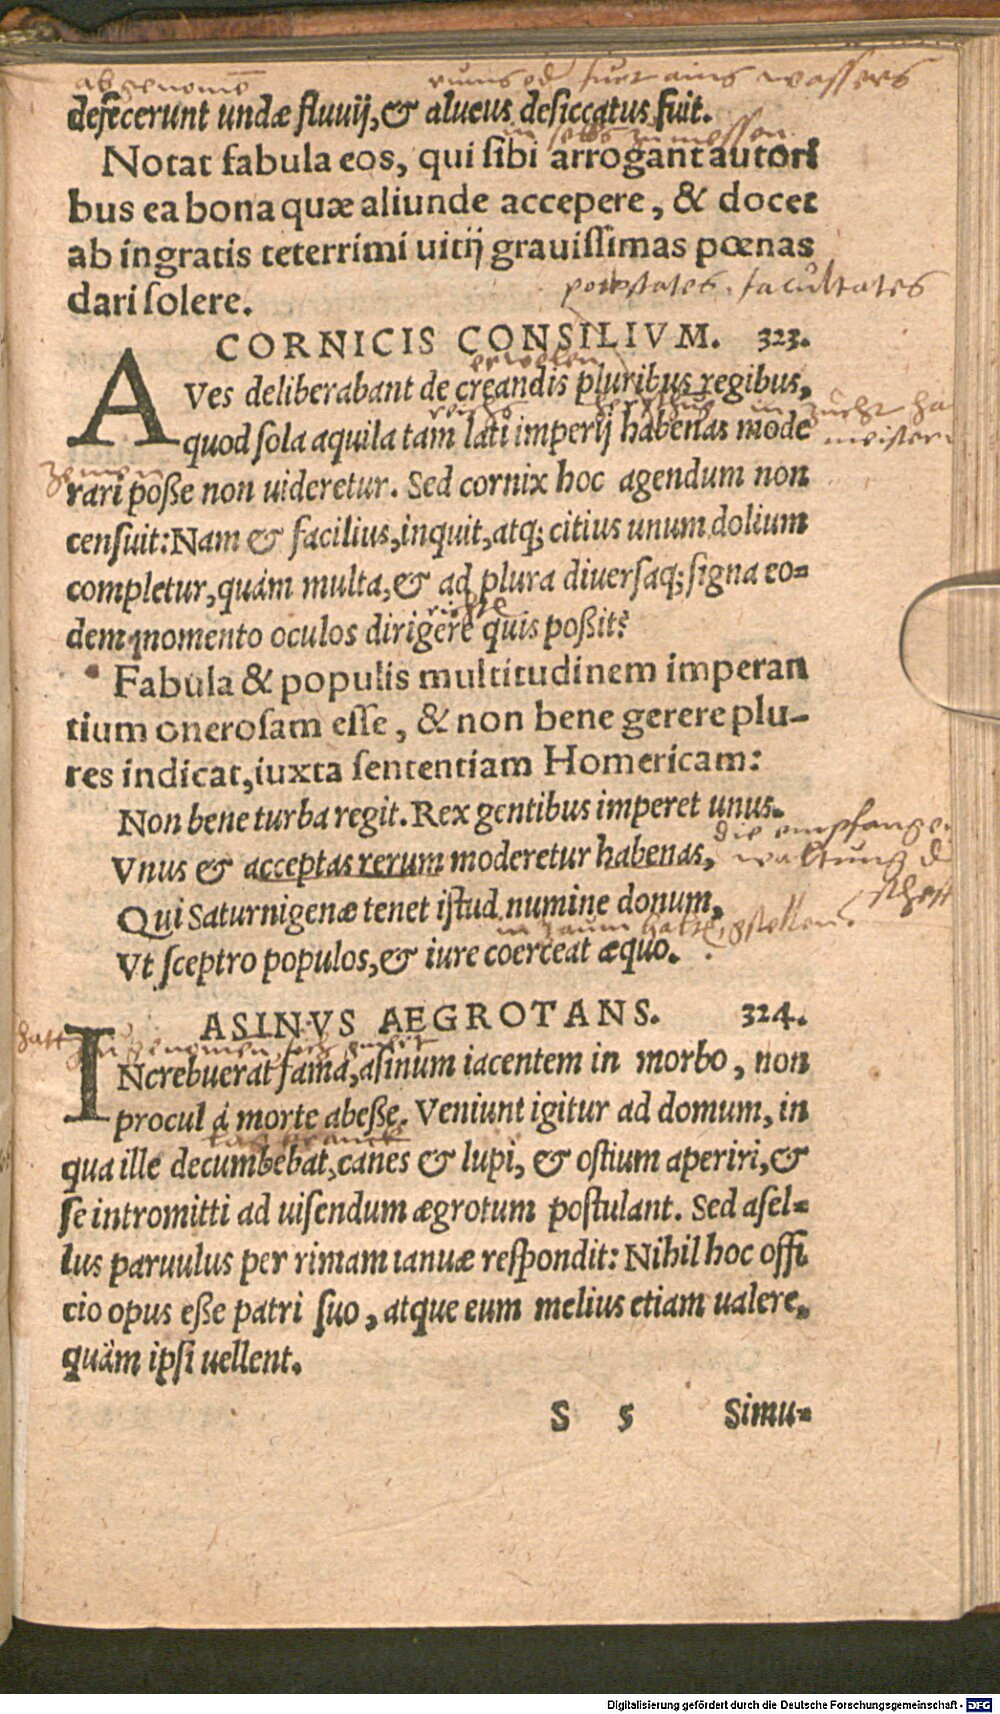 abgenomē
defecerunt undæ fluuij, & alueus desiccatus fuit.
Notat fabula eos, qui sibi arrogant autori
bus ea bona quæ aliunde accepere, & docet
ab ingratis teterrimi uitij grauissimas pœnas
dari solere.
potestates. facultates
CORNICIS CONSILIVM. 323.
erwelen
AVes deliberabant de creandis pluribus regibus,
quod sola aquila tam lati imperij habenas mode
rari posse non uideretur. Sed cornix hoc agendum non
censuit: Nam & facilius, inquit, atq; citius unum dolium
completur, quàm multa, & ad plura diuersaq; signa eo-
dem momento oculos dirigere quis possit?
Fabula & populis multitudinem imperan
tium onerosam esse, & non bene gerere plu-
res indicat, iuxta sententiam Homericam:
Non bene turba regit. Rex gentibus imperet unus.
Vnus & acceptas rerum moderetur habenas,
Qui Saturnigenæ tenet istud numine donum,
Vt sceptro populos, & iure coerceat æquo.
ASINVS AEGROTANS. 324.
INcrebuerat fama, asinum iacentem in morbo, non
procul à morte abesse. Veniunt igitur ad domum, in
lag kranck
qua ille decumbebat, canes & lupi, & ostium aperiri, &
se intromitti ad uisendum ægrotum postulant. Sed asel-
lus paruulus per rimam ianuæ respondit: Nihil hoc offi
cio opus esse patri suo, atque eum melius etiam ualere,
quàm ipsi uellent.
S 5 Simu-
Digitalisierung gefördert durch die Deutsche Forschungsgemeinschaft - DFG